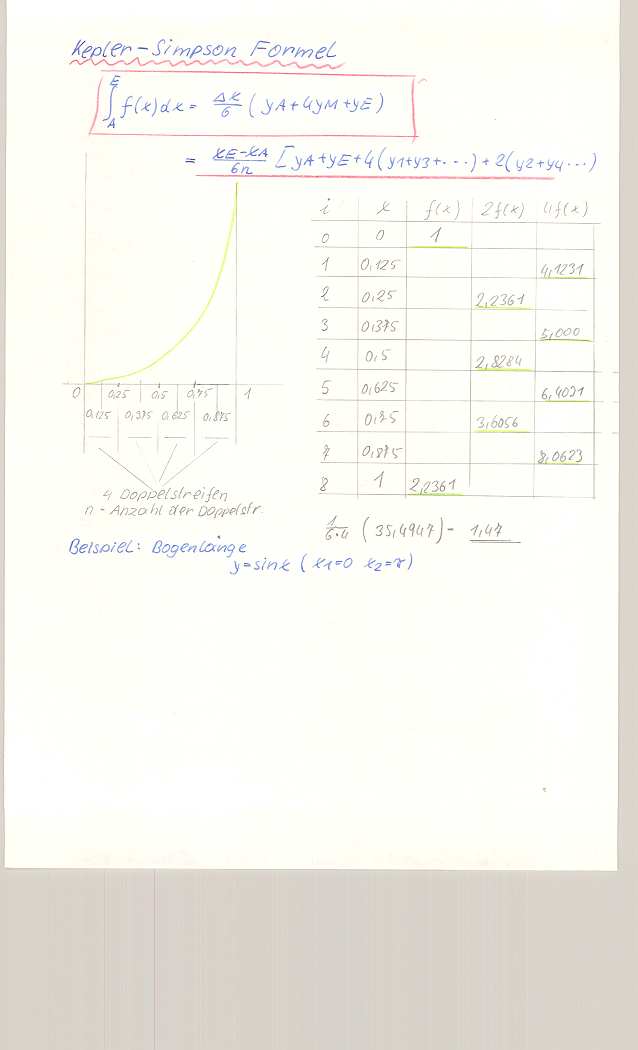 Kepler-Simpson Formel
∫ A E f(x)dx = Δx/6 (yA+4yM+yE)
= xE-xA/6n [yA+yE+4(y1+y3+...)+2(y2+y4...)
i x f(x) 2f(x) 4f(x)
0 0 1
1 0,125 4,1231
2 0,25 2,2361
3 0,375 5,000
4 0,5 2,8284
5 0,625 6,4031
6 0,75 3,6056
7 0,875 8,0623
8 1 2,2361
0 0,25 0,5 0,75 1
0,125 0,375 0,625 0,875
4 Doppelstreifen
n - Anzahl der Doppelstr.
1/6·4 (35,4947) = 1,47
Beispiel: Bogenlänge
y=sinx (x1=0 x2=π)